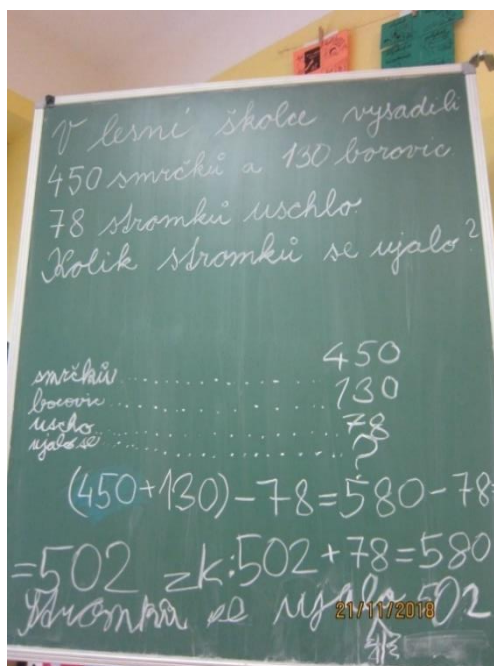 V lesní školce vysadili
450 smrčků a 130 borovic.
78 stromků uschlo.
Kolik stromků se ujalo?
smrčků ............ 450
borovic ............ 130
uscho ............ 78
ujalo se ............ ?
(450+130)-78=580-78=
=502 zk:502+78=580
Stromků se ujalo 502
21/11/2018